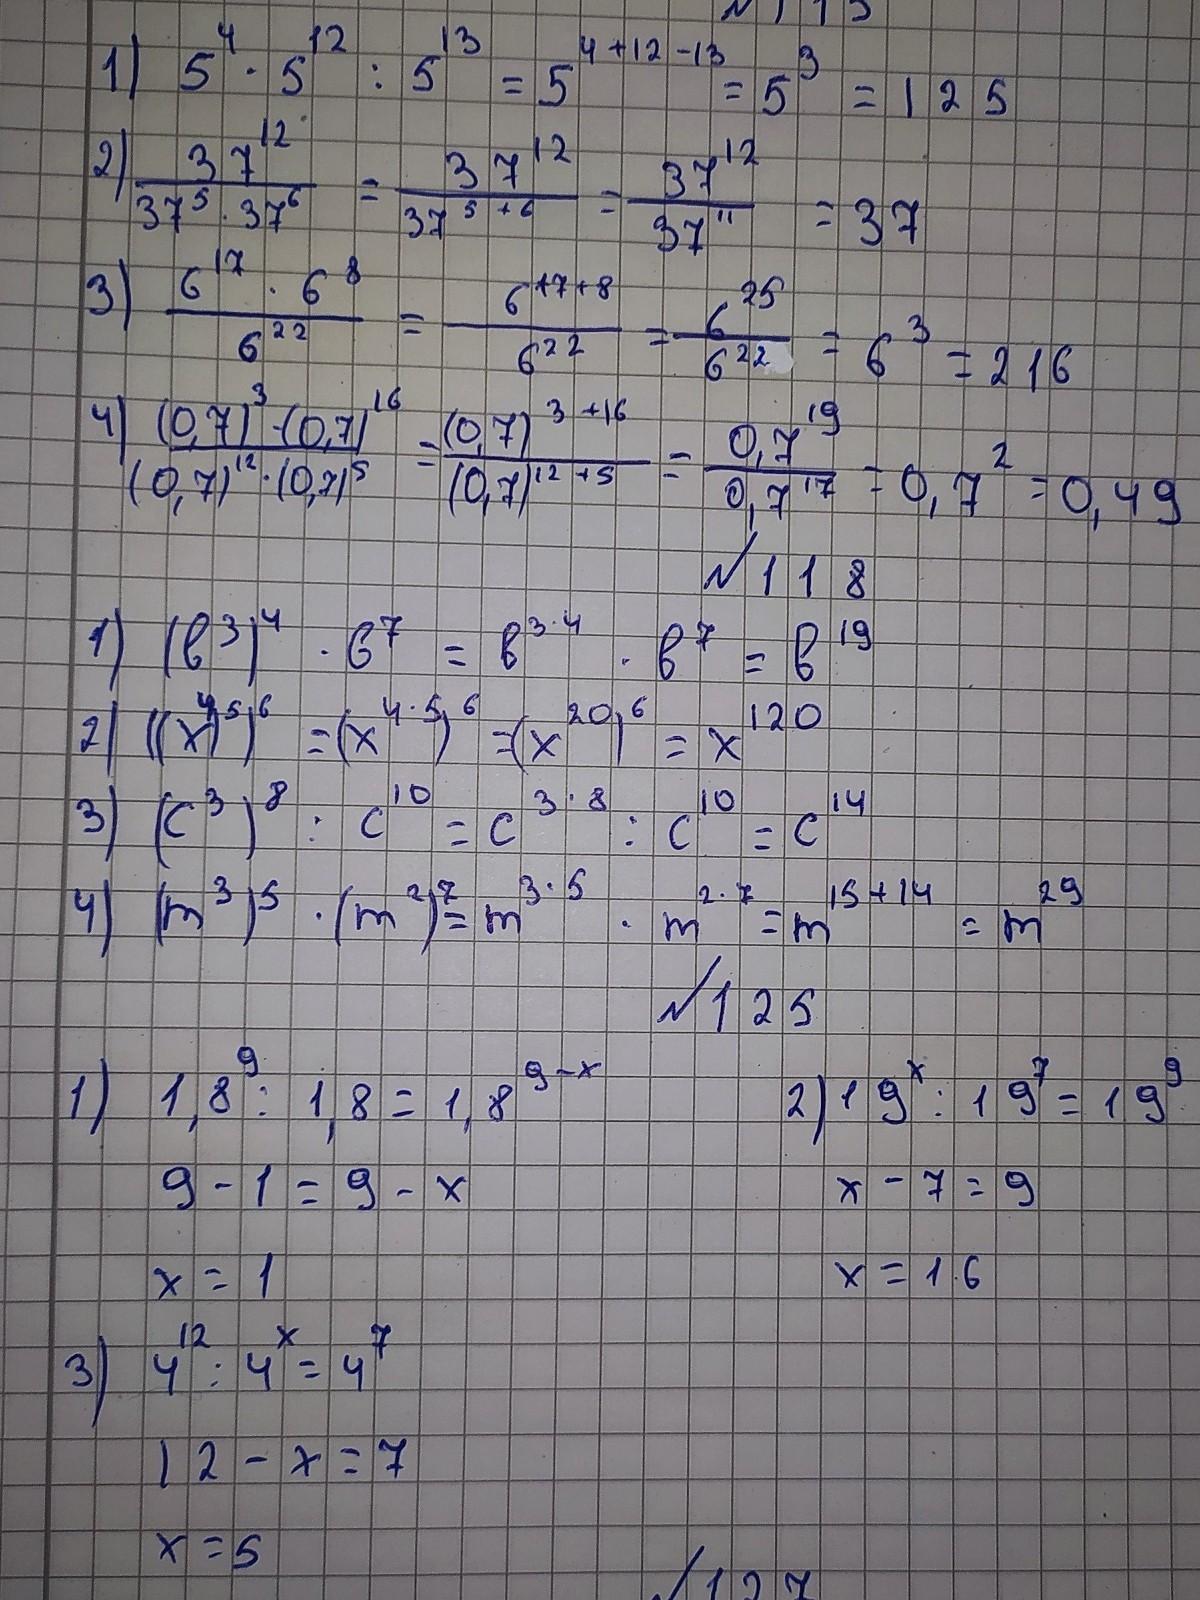 1) 5⁴ · 5¹² : 5¹³ = 5⁴⁺¹²⁻¹³ = 5³ = 125
2) 37¹² / 37⁵ · 37⁶ = 37¹² / 37⁵⁺⁶ = 37¹² / 37¹¹ = 37
3) 6¹⁷ · 6⁸ / 6²² = 6¹⁷⁺⁸ / 6²² = 6²⁵ / 6²² = 6³ = 216
4) (0,7)³ · (0,7)¹⁶ / (0,7)¹² · (0,7)⁵ = (0,7)³⁺¹⁶ / (0,7)¹²⁺⁵ = 0,7¹⁹ / 0,7¹⁷ = 0,7² = 0,49
№118
1) (в³)⁴ · в⁷ = в³·⁴ · в⁷ = в¹⁹
2) ((x⁴)⁵)⁶ = (x⁴·⁵)⁶ = (x²⁰)⁶ = x¹²⁰
3) (c³)⁸ : c¹⁰ = c³·⁸ : c¹⁰ = c¹⁴
4) (m³)⁵ · (m²)⁷ = m³·⁵ · m²·⁷ = m¹⁵⁺¹⁴ = m²⁹
№125
1) 1,8⁹ : 1,8 = 1,8⁹⁻ˣ 2) 19ˣ : 19⁷ = 19⁹
9 - 1 = 9 - x x - 7 = 9
x = 1 x = 16
3) 4¹² : 4ˣ = 4⁷
12 - x = 7
x = 5
№127